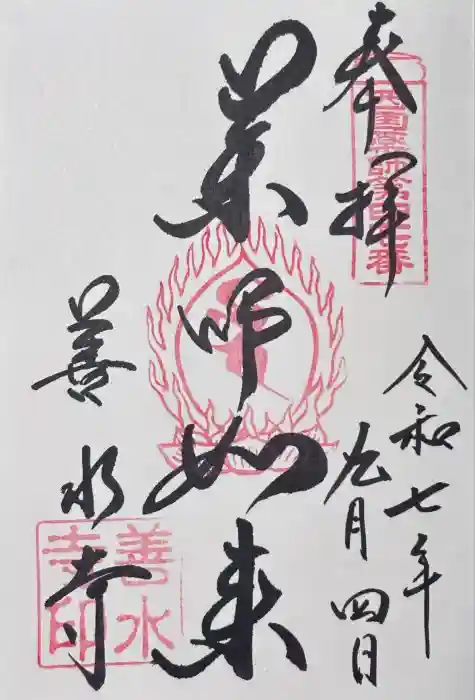 奉拝
西国薬師第四七番
令和七年
九月四日
薬師如来
善水寺
善水
寺印